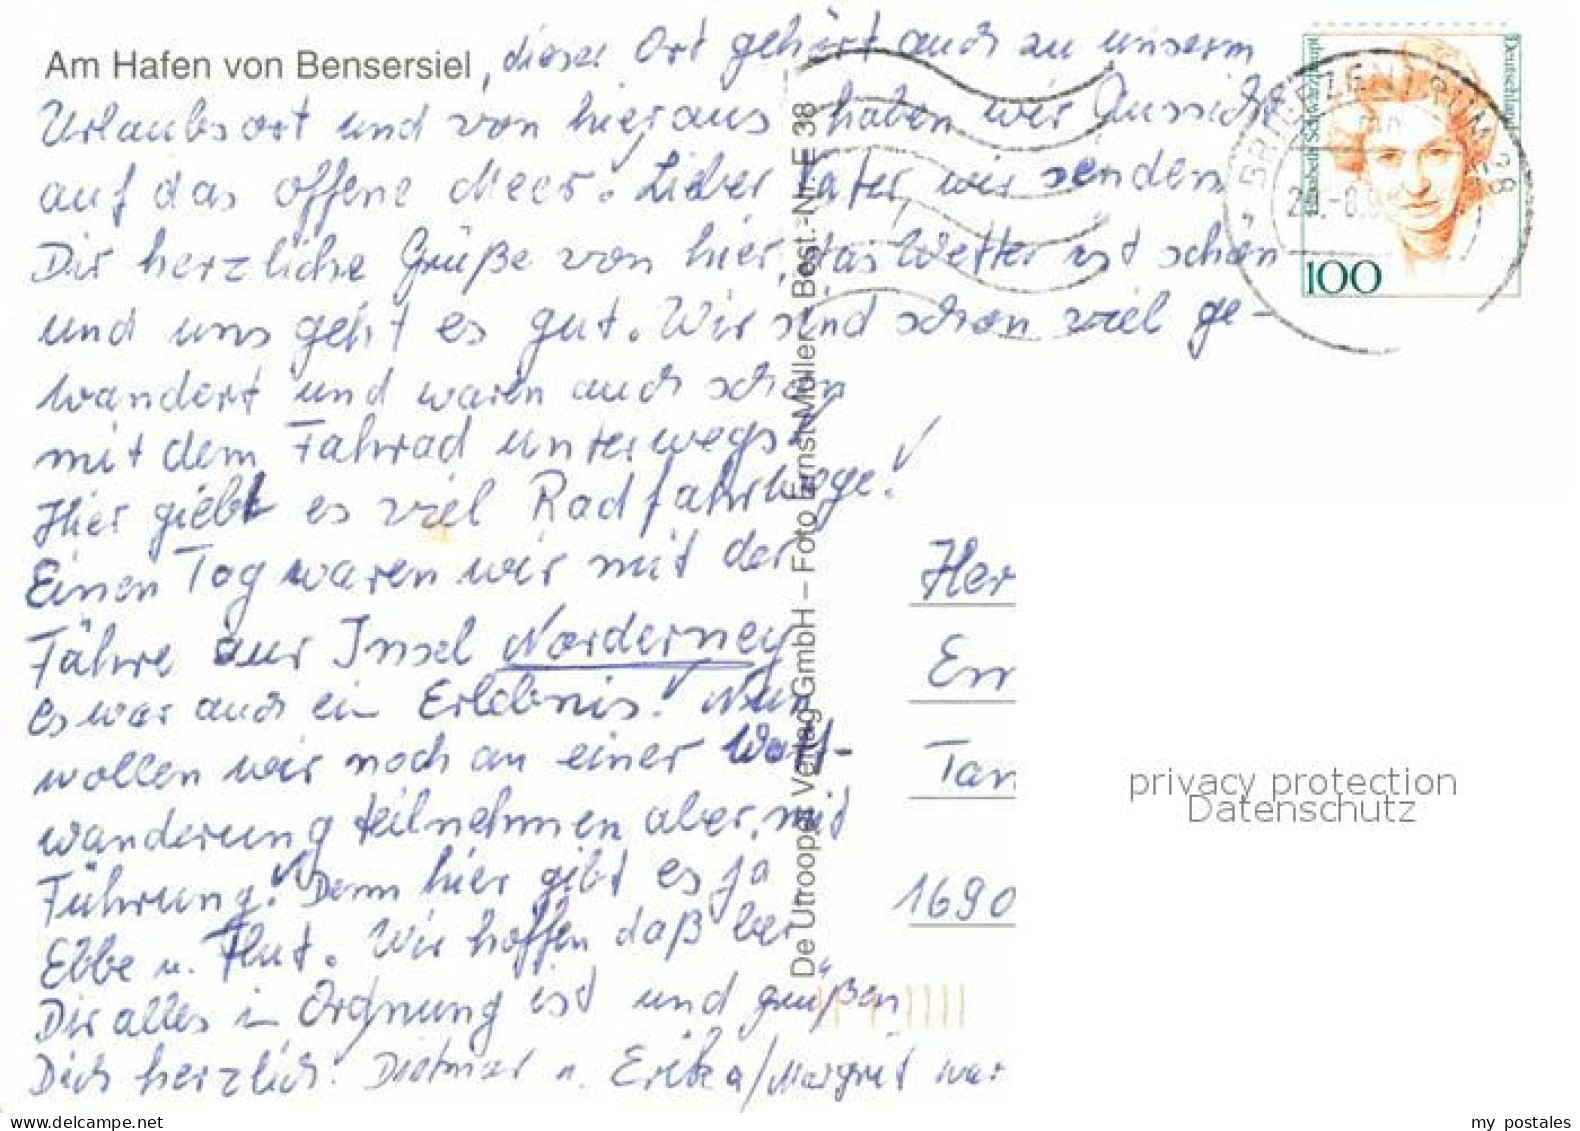 Am Hafen von Bensersiel, dieser Ort gehört auch zu unserm
Urlaubsort und von hier aus haben wir Aussicht
auf das offene Meer. Lieber Vater, wir senden
Dir herzliche Grüße von hier, das Wetter ist schön
und uns geht es gut. Wir sind schon viel ge-
wandert und waren auch schon
mit dem Fahrad unterwegs.
Hier giebt es viel Radfahrwege!
Einen Tag waren wir mit der
Fähre zur Insel Norderney
es war auch ein Erlebnis! Nun
wollen wir noch an einer Watt-
wanderung teilnehmen aber, mit
Führung! Denn hier gibt es ja
Ebbe u. Flut. Wir hoffen daß bei
Dir alles in Ordnung ist und grüßen
Dich herzlich. Dietmar u. Erika/Margrit war
De Utrooper Verlag GmbH – Foto Ernst Müller, Best.-Nr. E 38
Deutschland
Elisabeth Schwarzhaupt
100
BRIEFZENTRUM
Her
Err
Tan
1690
privacy protection
Datenschutz
my postales
www.delcampe.net